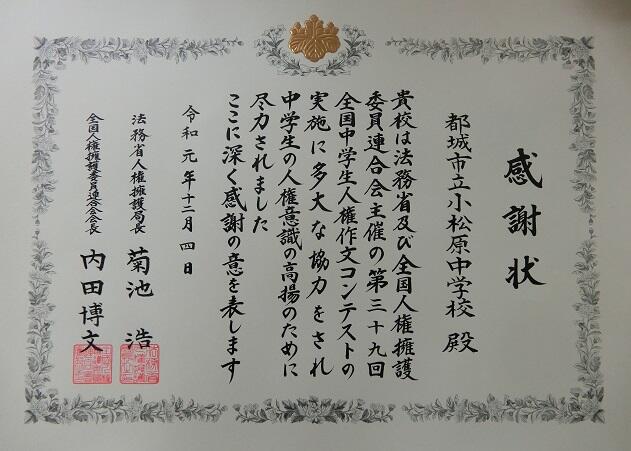 感謝状
都城市立小松原中学校 殿
貴校は法務省及び全国人権擁護
委員連合会主催の第三十九回
全国中学生人権作文コンテストの
実施に多大な協力をされ
中学生の人権意識の高揚のために
尽力されました
ここに深く感謝の意を表します
令和元年十二月四日
法務省人権擁護局長 菊池 浩
全国人権擁護委員連合会会長 内田博文